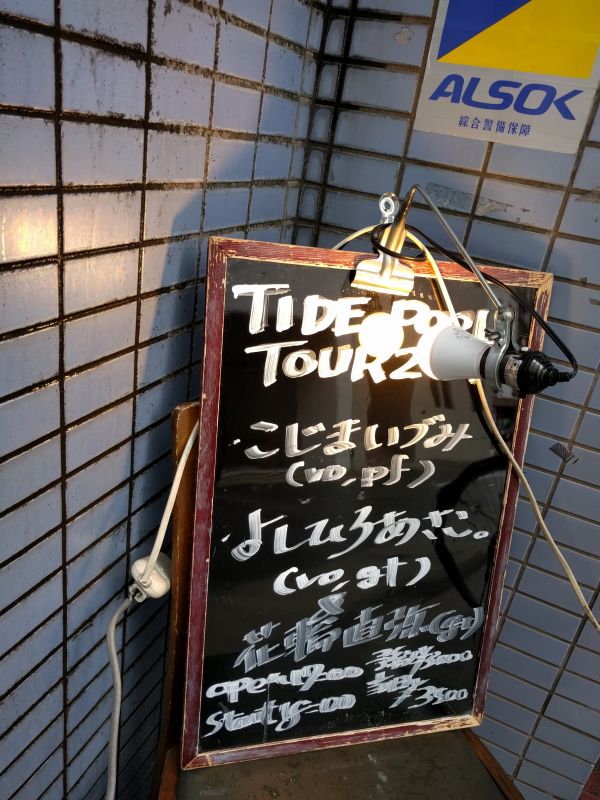 ALSOK
綜合警備保障
TIDE POOL
TOUR2
こじまいづみ
(vo,pf)
よしひろあさむ。
(vo,gt)
&
花輪直弥(gt)
open17:00 予約/3000
start18:00 当日/3500